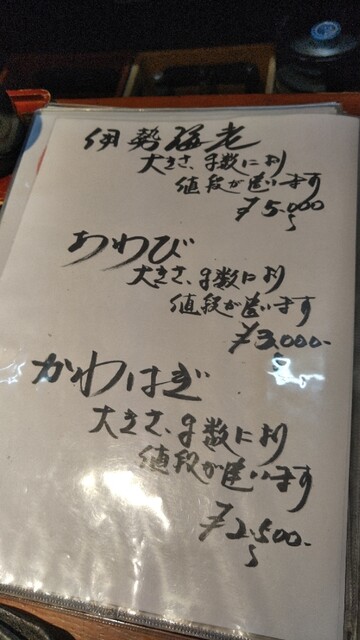 伊勢海老
大きさ、手数により
値段が違います
¥5,000
〜
あわび
大きさ、手数により
値段が違います
¥3,000-
〜
かわはぎ
大きさ、手数により
値段が違います
¥2,500-
〜